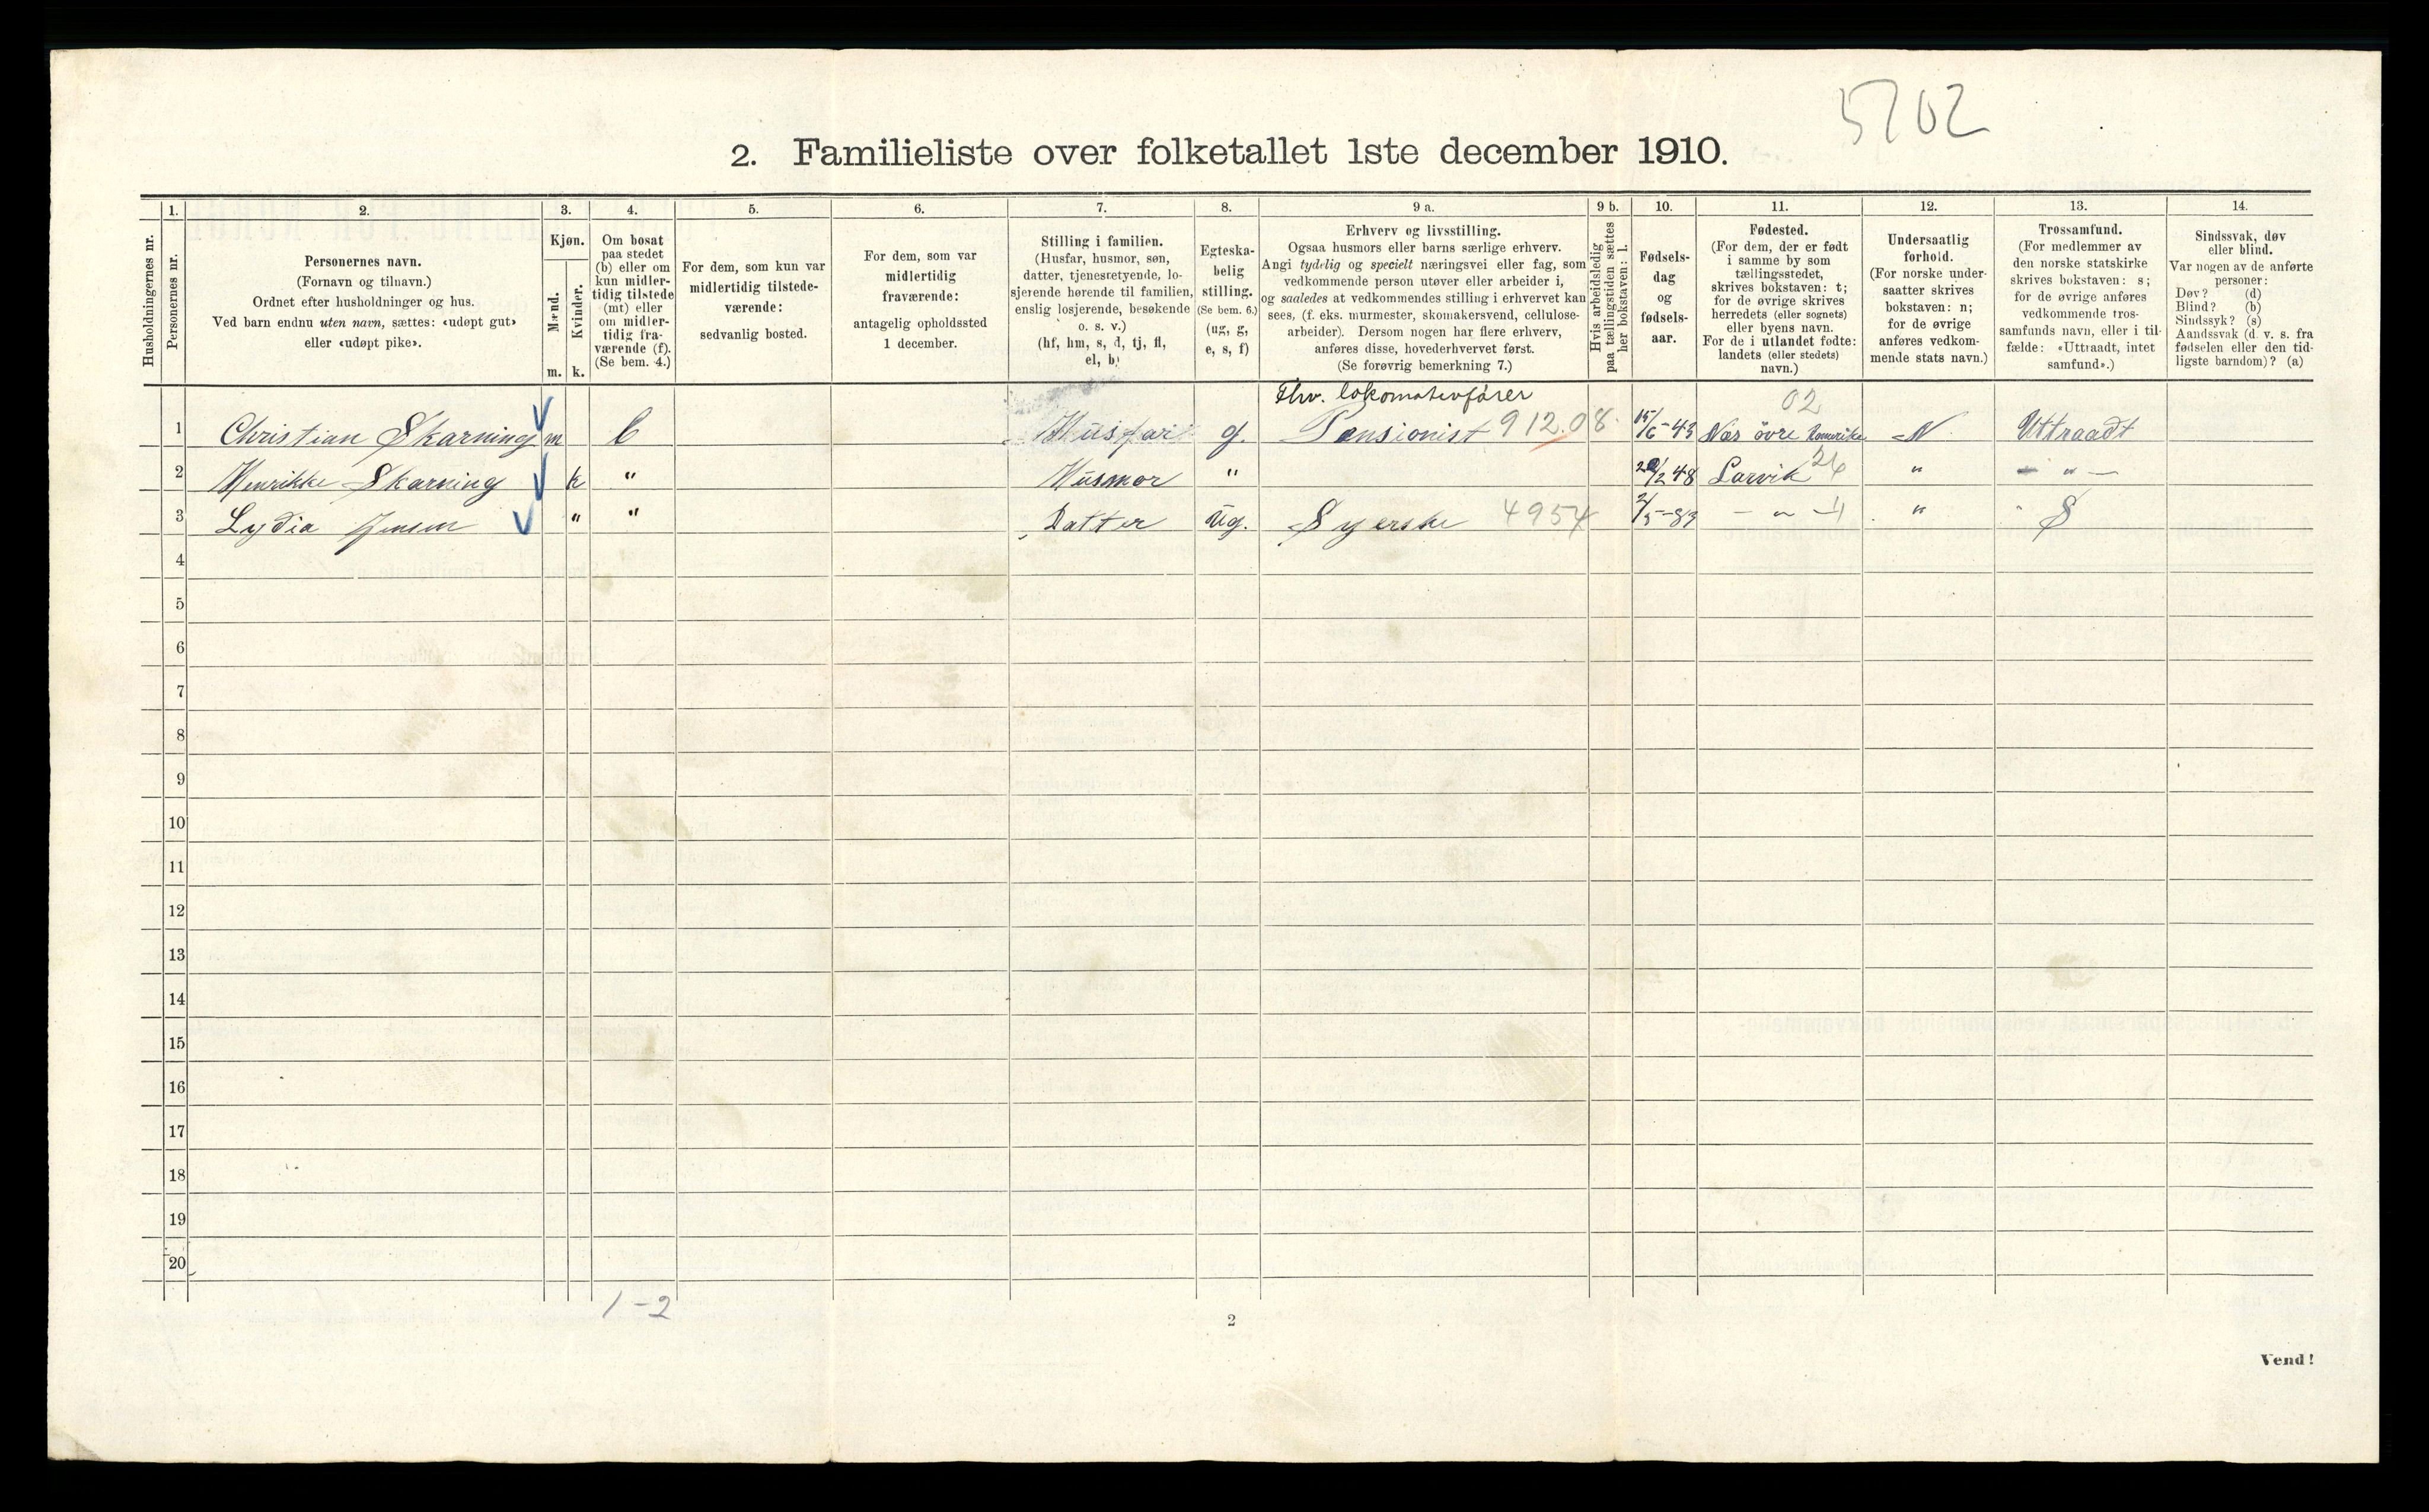 5702
2. Familieliste over folketallet 1ste december 1910.
Husholdningernes nr.
1.
Personernes nr.
2.
Personernes navn.
(Fornavn og tilnavn.)
Ordnet efter husholdninger og hus.
Ved barn endnu uten navn, sættes: «udøpt gut»
eller «udøpt pike».
3.
Kjøn.
Mænd.
Kvinder.
m. k.
4.
Om bosat
paa stedet
(b) eller om
kun midler-
tidig tilstede
(mt) eller
om midler-
tidig fra-
værende (f).
(Se bem. 4.)
5.
For dem, som kun var
midlertidig tilstede-
værende:
sedvanlig bosted.
6.
For dem, som var
midlertidig
fraværende:
antagelig opholdssted
1 december.
7.
Stilling i familien.
(Husfar, husmor, søn,
datter, tjenestetyende, lo-
sjerende hørende til familien,
enslig losjerende, besøkende
o. s. v.)
(hf, hm, s, d, tj, fl,
el, b)
8.
Egteska-
belig
stilling.
(Se bem. 6.)
(ug, g,
e, s, f)
9 a.
Erhverv og livsstilling.
Ogsaa husmors eller barns særlige erhverv.
Angi tydelig og specielt næringsvei eller fag, som
vedkommende person utøver eller arbeider i,
og saaledes at vedkommendes stilling i erhvervet kan
sees, (f. eks. murmester, skomakersvend, cellulose-
arbeider). Dersom nogen har flere erhverv,
anføres disse, hovederhvervet først.
(Se forøvrig bemerkning 7.)
9 b.
Hvis arbeidsledig
paa tællingstiden sættes
her bokstaven: l.
10.
Fødsels-
dag
og
fødsels-
aar.
11.
Fødested.
(For dem, der er født
i samme by som
tællingsstedet,
skrives bokstaven: t;
for de øvrige skrives
herredets (eller sognets)
eller byens navn.
For de i utlandet fødte:
landets (eller stedets)
navn.)
12.
Undersaatlig
forhold.
(For norske under-
saatter skrives
bokstaven: n;
for de øvrige
anføres vedkom-
mende stats navn.)
13.
Trossamfund.
(For medlemmer av
den norske statskirke
skrives bokstaven: s;
for de øvrige anføres
vedkommende tros-
samfunds navn, eller i til-
fælde: «Uttraadt, intet
samfund».)
14.
Sindssvak, døv
eller blind.
Var nogen av de anførte
personer:
Døv? (d)
Blind? (b)
Sindssyk? (s)
Aandssvak (d. v. s. fra
fødselen eller den tid-
ligste barndom)? (a)
Fhv. lokomotivfører 02
1 Christian Skarning m b Husfar g. Pensionist 912.08 15/6-43 Næs övre Romerike N Uttraadt
2 Henrikke Skarning k " Husmor " 20/2 48 Larvik " " —
3 Lydia Jensen " " Datter Ug. Syerske 4954 2/5-83 — " — " S
4
5
6
7
8
9
10
11
12
13
14
15
16
17
18
19
20
1-2
2
Vend!